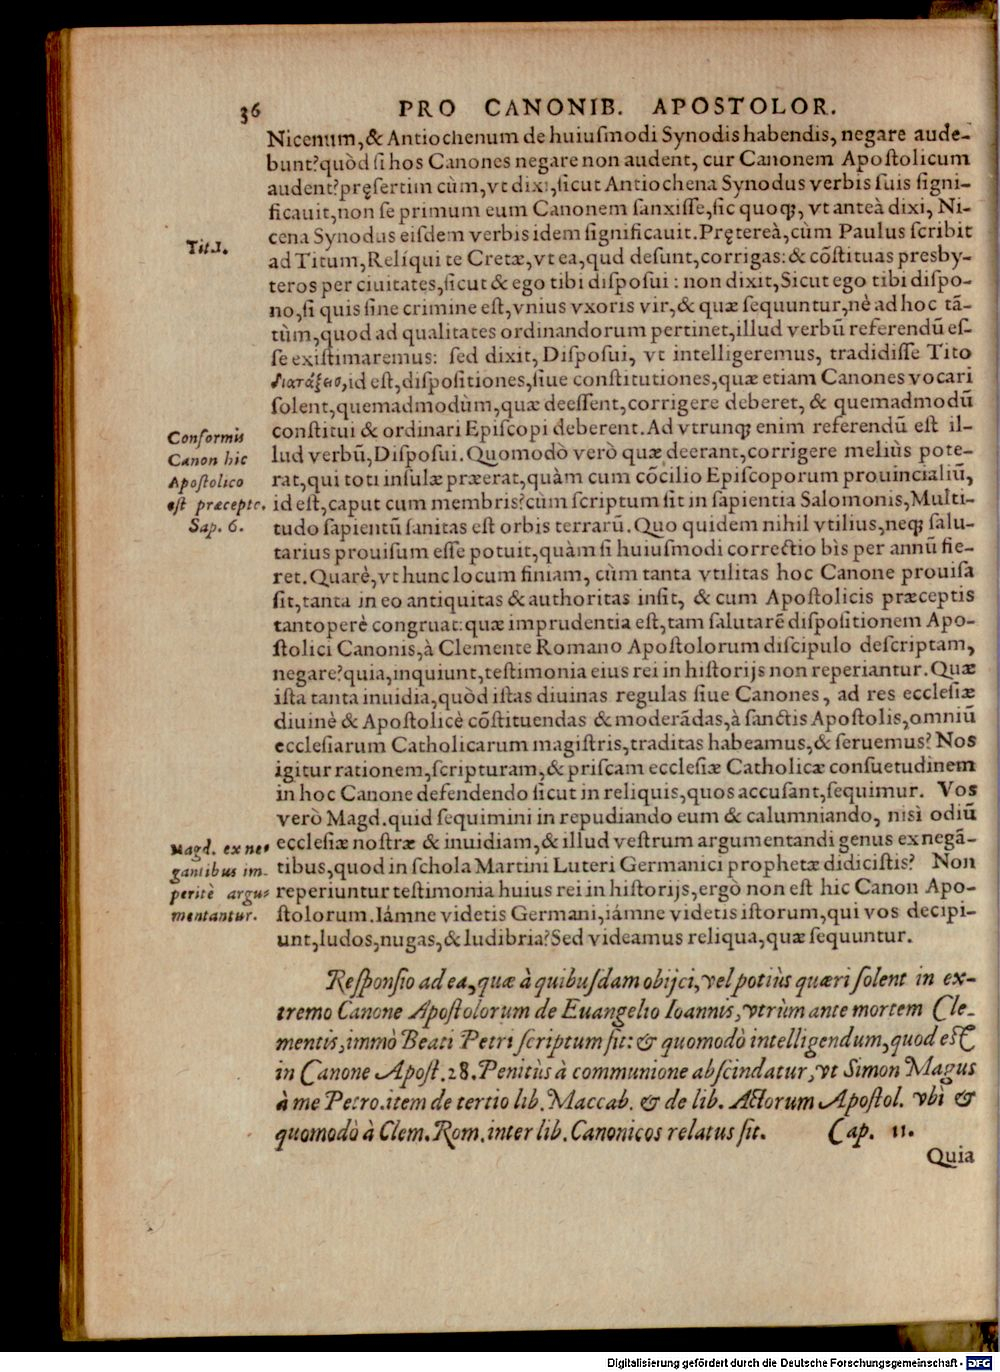 36 PRO CANONIB. APOSTOLOR.
Nicenum,& Antiochenum de huiuſmodi Synodis habendis, negare aude-
bunt?quòd ſi hos Canones negare non audent, cur Canonem Apoſtolicum
audent?pręſertim cùm,vt dixi,ſicut Antiochena Synodus verbis ſuis ſigni-
ficauit,non ſe primum eum Canonem ſanxiſſe,ſic quoq;, vt anteà dixi, Ni-
cena Synodus eiſdem verbis idem ſignificauit.Prętereà,cùm Paulus ſcribit
Tit.1.
ad Titum,Relíqui te Cretæ,vt ea,quę deſunt,corrigas:& cõſtituas presby-
teros per ciuitates,ſicut & ego tibi diſpoſui : non dixit,Sicut ego tibi diſpo-
no,ſi quis ſine crimine eſt,vnius vxoris vir,& quæ ſequuntur,nè ad hoc tã-
tùm,quod ad qualitates ordinandorum pertinet,illud verbũ referendũ eſ-
ſe exiſtimaremus: ſed dixit, Diſpoſui, vt intelligeremus, tradidiſſe Tito
διατάξεις,id eſt,diſpoſitiones,ſiue conſtitutiones,quæ etiam Canones vocari
ſolent,quemadmodùm,quæ deeſſent,corrigere deberet, & quemadmodũ
conſtitui & ordinari Epiſcopi deberent.Ad vtrunq; enim referendũ eſt il-
lud verbũ,Diſpoſui.Quomodò verò quæ deerant,corrigere meliùs pote-
rat,qui toti inſulæ præerat,quàm cum cõcilio Epiſcoporum prouincialiũ,
id eſt,caput cum membris?cùm ſcriptum ſit in ſapientia Salomonis,Multi-
Conformis
Canon hic
Apoſtolico
eſt præcepto.
Sap. 6.
tudo ſapientũ ſanitas eſt orbis terrarũ.Quo quidem nihil vtilius,neq; ſalu-
tarius prouiſum eſſe potuit,quàm ſi huiuſmodi correctio bis per annũ fie-
ret.Quarè,vt hunc locum finiam, cùm tanta vtilitas hoc Canone prouiſa
ſit,tanta in eo antiquitas & authoritas inſit, & cum Apoſtolicis præceptis
tantoperè congruat:quæ imprudentia eſt,tam ſalutarẽ diſpoſitionem Apo-
ſtolici Canonis,à Clemente Romano Apoſtolorum diſcipulo deſcriptam,
negare?quia,inquiunt,teſtimonia eius rei in hiſtorijs non reperiantur.Quæ
iſta tanta inuidia,quòd iſtas diuinas regulas ſiue Canones, ad res eccleſiæ
diuinè & Apoſtolicè cõſtituendas & moderãdas,à ſanctis Apoſtolis,omniũ
eccleſiarum Catholicarum magiſtris,traditas habeamus,& ſeruemus? Nos
igitur rationem,ſcripturam,& priſcam eccleſiæ Catholicæ conſuetudinem
in hoc Canone defendendo ſicut in reliquis,quos accuſant,ſequimur. Vos
verò Magd.quid ſequimini in repudiando eum & calumniando, niſi odiũ
eccleſiæ noſtræ & inuidiam,& illud veſtrum argumentandi genus ex negã-
tibus,quod in ſchola Martini Luteri Germanici prophetæ didiciſtis? Non
reperiuntur teſtimonia huius rei in hiſtorijs,ergò non eſt hic Canon Apo-
ſtolorum.Iámne videtis Germani,iámne videtis iſtorum,qui vos decipi-
unt,ludos,nugas,& ludibria?Sed videamus reliqua,quæ ſequuntur.
Magd. ex ne-
gantibus im-
peritè argu-
mentantur.
Reſponſio ad ea,quæ à quibuſdam obijci,vel potiùs quæri ſolent in ex-
tremo Canone Apoſtolorum de Euangelio Ioannis,vtrùm ante mortem Cle-
mentis,immò Beati Petri ſcriptum ſit:& quomodò intelligendum,quod eſt
in Canone Apoſt.28.Penitùs à communione abſcindatur,vt Simon Magus
à me Petro.item de tertio lib.Maccab. & de lib. Actorum Apoſtol. vbi &
quomodò à Clem.Rom.inter lib.Canonicos relatus ſit. Cap. 11.
Quia
Digitalisierung gefördert durch die Deutsche Forschungsgemeinschaft - DFG